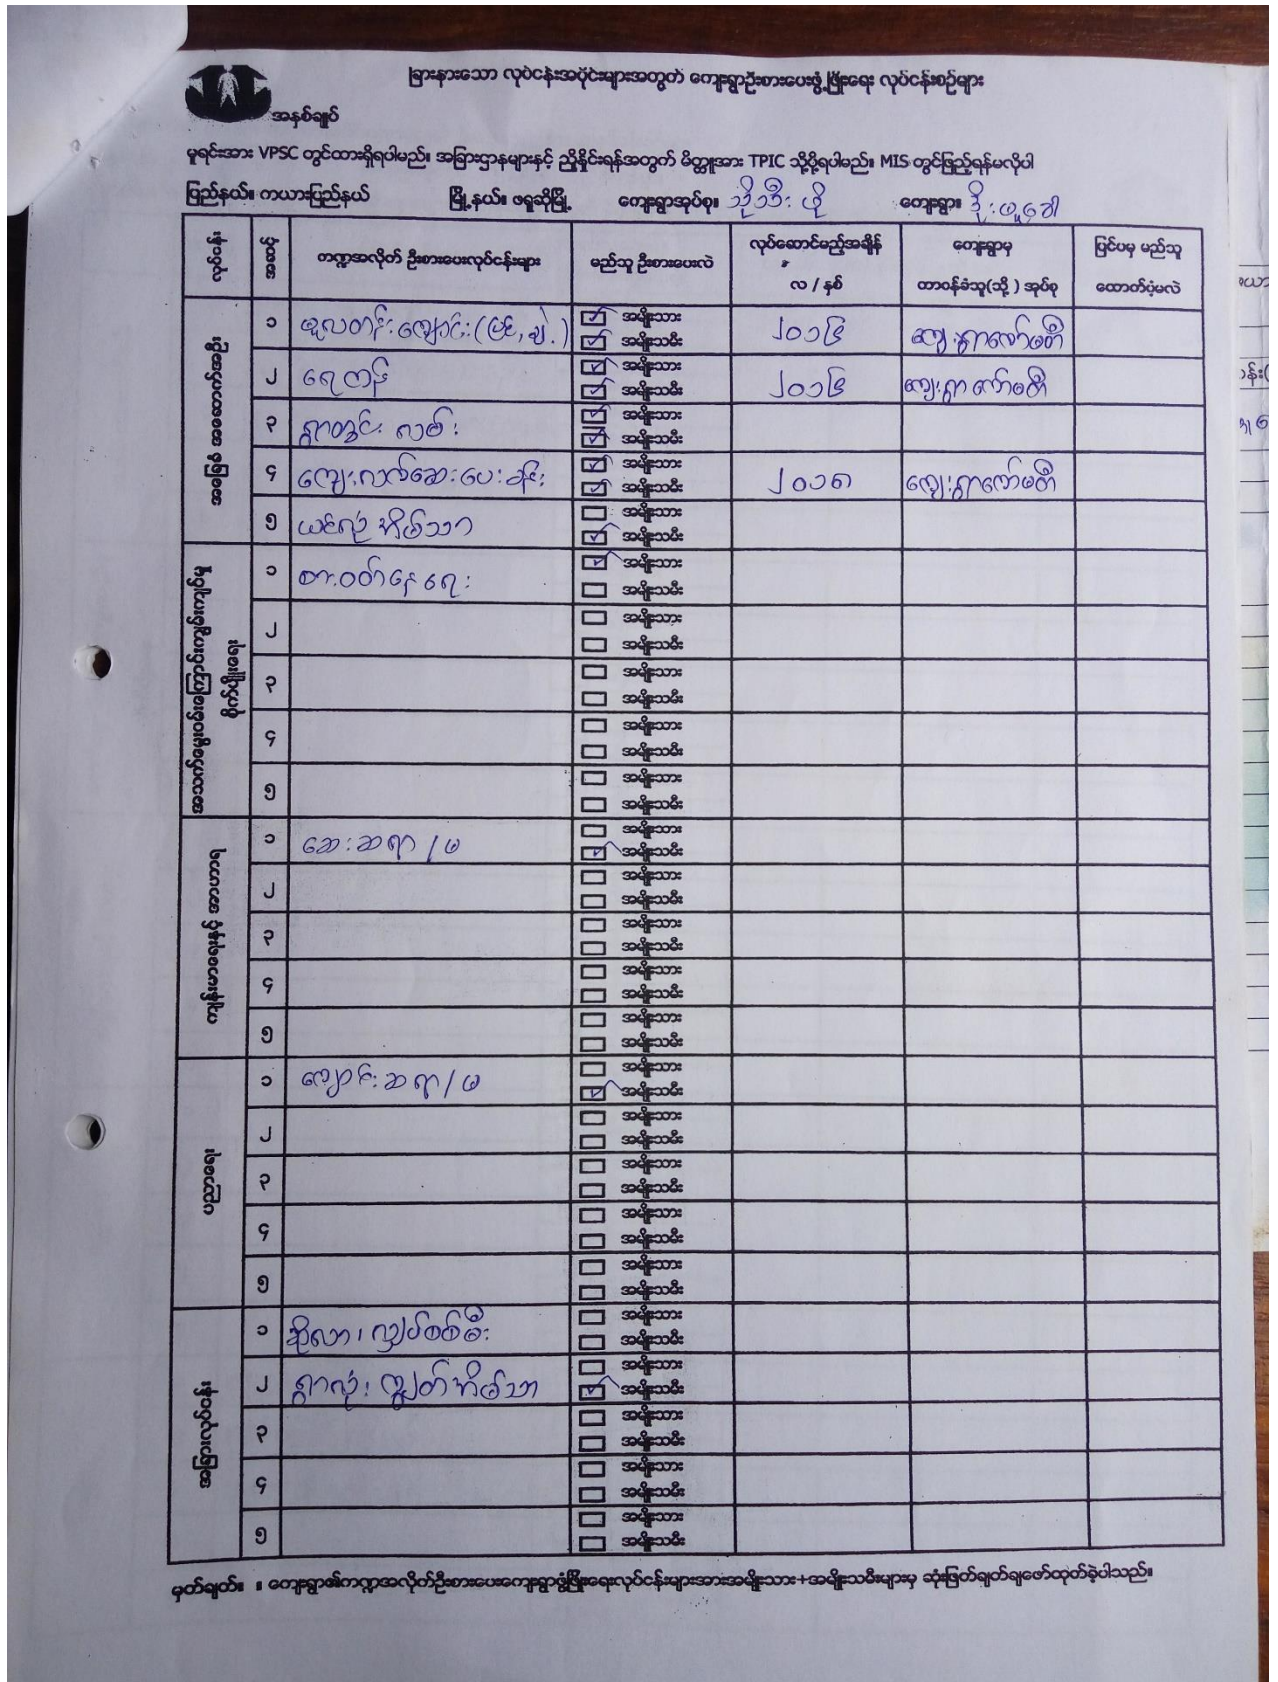 ခြားနားသော လုပ်ငန်းအပိုင်းများအတွက် ကျေးရွာဦးစားပေးဖွံ့ဖြိုးရေး လုပ်ငန်းစဉ်များ
အနှစ်ချုပ်
မူရင်းအား VPSC တွင်ထားရှိရပါမည်။ အခြားဌာနများနှင့် ညှိနှိုင်းရန်အတွက် မိတ္တူအား TPIC သို့ပို့ရပါမည်။ MIS တွင်ဖြည့်ရန်မလိုပါ
ပြည်နယ်။ ကယားပြည်နယ် မြို့နယ်။ ဖရူဆိုမြို့ ကျေးရွာအုပ်စု။ ကျေးရွာ။
လုပ်ငန်း အမှတ် ကဏ္ဍအလိုက် ဦးစားပေးလုပ်ငန်းများ မည်သူ ဦးစားပေးလဲ လုပ်ဆောင်မည့်အချိန် လ / နှစ် ကျေးရွာမှ တာဝန်ခံသူ(သို့) အုပ်စု ပြင်ပမှ မည်သူ ထောက်ပံ့မလဲ
အခြေခံ အဆောက်အဦ
၁ မူလတန်းကျောင်း (ပြင်, ချဲ့) အမျိုးသား အမျိုးသမီး ၂၀၁၆ ကျေးရွာကော်မတီ
၂ ရေကန် အမျိုးသား အမျိုးသမီး ၂၀၁၆ ကျေးရွာကော်မတီ
၃ ရွာတွင်း လမ်း အမျိုးသား အမျိုးသမီး
၄ ကျေးလက်ဆေးပေးခန်း အမျိုးသား အမျိုးသမီး ၂၀၁၈ ကျေးရွာကော်မတီ
၅ ယင်လုံအိမ်သာ အမျိုးသား အမျိုးသမီး
၁ စားဝတ်နေရေး အမျိုးသား အမျိုးသမီး
၂ အမျိုးသား အမျိုးသမီး
၃ အမျိုးသား အမျိုးသမီး
၄ အမျိုးသား အမျိုးသမီး
၅ အမျိုးသား အမျိုးသမီး
ကျန်းမာရေးနှင့် အာဟာရ
၁ ဆေးဆရာ/မ အမျိုးသား အမျိုးသမီး
၂ အမျိုးသား အမျိုးသမီး
၃ အမျိုးသား အမျိုးသမီး
၄ အမျိုးသား အမျိုးသမီး
၅ အမျိုးသား အမျိုးသမီး
ပညာရေး
၁ ကျောင်းဆရာ/မ အမျိုးသား အမျိုးသမီး
၂ အမျိုးသား အမျိုးသမီး
၃ အမျိုးသား အမျိုးသမီး
၄ အမျိုးသား အမျိုးသမီး
၅ အမျိုးသား အမျိုးသမီး
အခြားလုပ်ငန်း
၁ ဆိုလာ၊ လျှပ်စစ်မီး အမျိုးသား အမျိုးသမီး
၂ ရွာလုံးကျွတ်အိမ်သာ အမျိုးသား အမျိုးသမီး
၃ အမျိုးသား အမျိုးသမီး
၄ အမျိုးသား အမျိုးသမီး
၅ အမျိုးသား အမျိုးသမီး
မှတ်ချက်။ ။ ကျေးရွာ၏ကဏ္ဍအလိုက်ဦးစားပေးကျေးရွာဖွံ့ဖြိုးရေးလုပ်ငန်းများအားအမျိုးသား+အမျိုးသမီးများမှ ဆုံးဖြတ်ချက်ချဖော်ထုတ်ခဲ့ပါသည်။